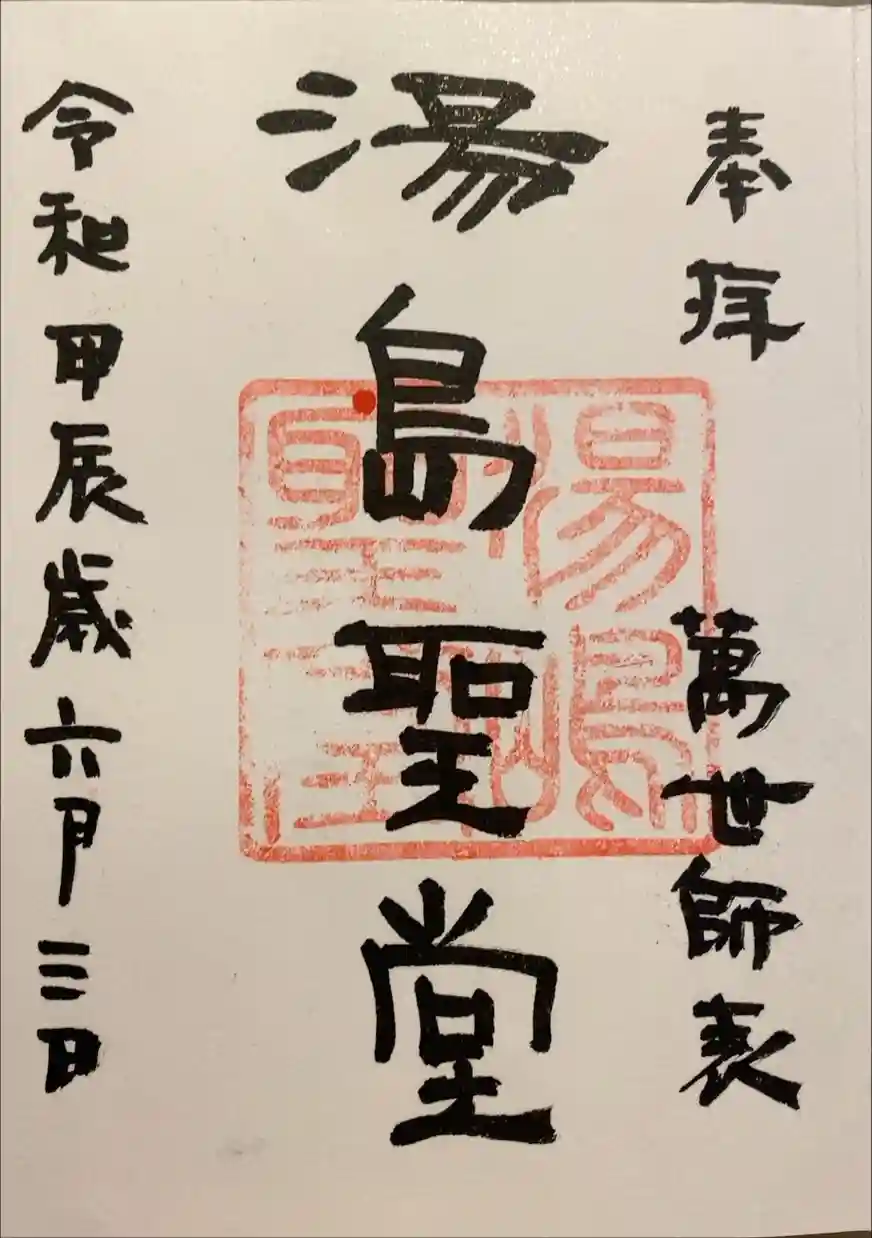 奉拝　萬世師表
湯島聖堂
令和甲辰歳六月三日
湯島聖堂